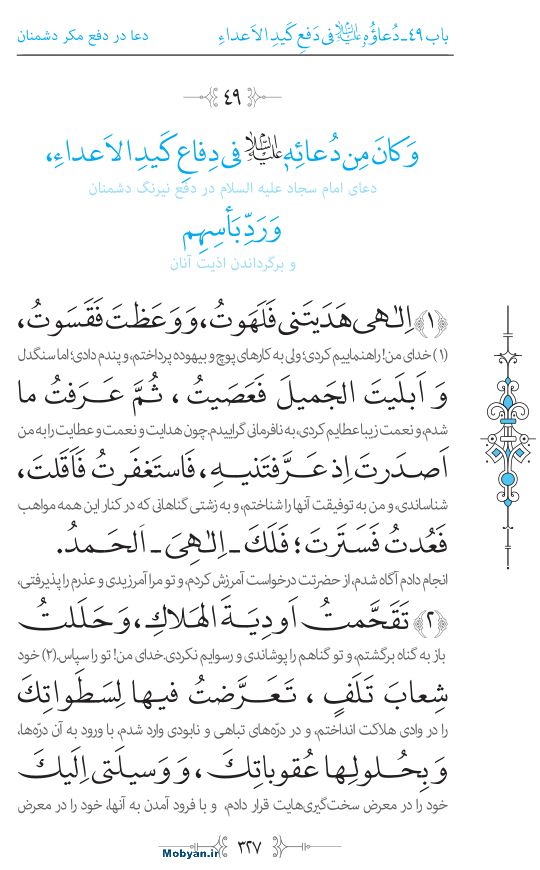 باب ۴۹ـ دُعاؤُهُ عليه‌السلام فی دَفعِ کَیدِ الاَعداءِ دعا در دفع مکر دشمنان
۴۹
وَ کانَ مِن دُعائِهِ عليه‌السلام فی دِفاعِ کَیدِ الاَعداءِ،
دعای امام سجاد علیه السلام در دفع نیرنگ دشمنان
وَ رَدِّ بَأسِهِم
و برگرداندن اذیت آنان
﴿۱﴾ اِلـٰهی هَدَیتَنی فَلَهَوتُ، وَ وَعَظتَ فَقَسَوتُ،
(۱) خدای من! راهنماییم کردی؛ ولی به کارهای پوچ و بیهوده پرداختم، و پندم دادی؛ اما سنگدل
وَ اَبلَیتَ الجَمیلَ فَعَصَیتُ ، ثُمَّ عَرَفتُ ما
شدم، و نعمت زیبا عطایم کردی، به نافرمانی گراییدم. چون هدایت و نعمت و عطایت را به من
اَصدَرتَ اِذ عَرَّفتَنیهِ، فَاستَغفَرتُ فَاَقَلتَ،
شناساندی، و من به توفیقت آنها را شناختم، و به زشتی گناهانی که در کنار این همه مواهب
فَعُدتُ فَسَتَرتَ؛ فَلَکَ ـ اِلـٰهیَ ـ اَلحَمدُ.
انجام دادم آگاه شدم، از حضرتت درخواست آمرزش کردم، و تو مرا آمرزیدی و عذرم را پذیرفتی،
﴿۲﴾ تَقَحَّمتُ اَودِیَةَ الهَلاکِ، وَ حَلَلتُ
باز به گناه برگشتم، و تو گناهم را پوشاندی و رسوایم نکردی. خدای من! تو را سپاس. (۲) خود
شِعابَ تَلَفٍ ، تَعَرَّضتُ فیها لِسَطَواتِکَ
را در وادی هلاکت انداختم، و در درّه‌های تباهی و نابودی وارد شدم، با ورود به آن درّه‌ها،
وَ بِحُلولِها عُقوباتِکَ ، وَ وَسیلَتی اِلَیکَ
خود را در معرض سخت‌گیری‌هایت قرار دادم، و با فرود آمدن به آنها، خود را در معرض
۳۲۷
Mobyan.ir